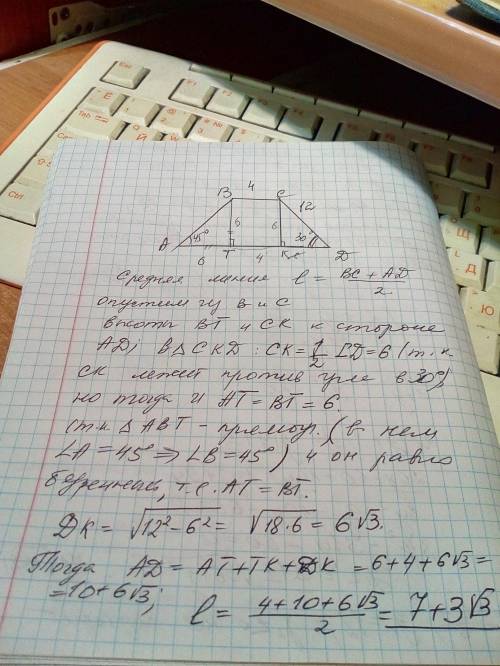 Esc
F1
F2
F3
Tab
Ё
1
2
Й
В 4 С
12
6 6
А 45° 30° Д
Т К
6 4
Средняя линия l = (BC + AD)/2
опустим из В и С
высоты ВТ и СК к стороне
AD; в △CKD: CK = 1/2 CD = 6 (т.к
СК лежит против угла в 30°),
но тогда и AT = BT = 6
(т.к. △ABT - прямоуг. (в нем
∠A = 45° ⇒ ∠B = 45°) и он равно
бедренный, т.е. AT = BT.
ДК = √(12² - 6²) = √(18·6) = 6√3.
Тогда AD = AT + TK + ДК = 6+4+6√3 =
= 10+6√3;
l = (4+10+6√3)/2 = 7+3√3